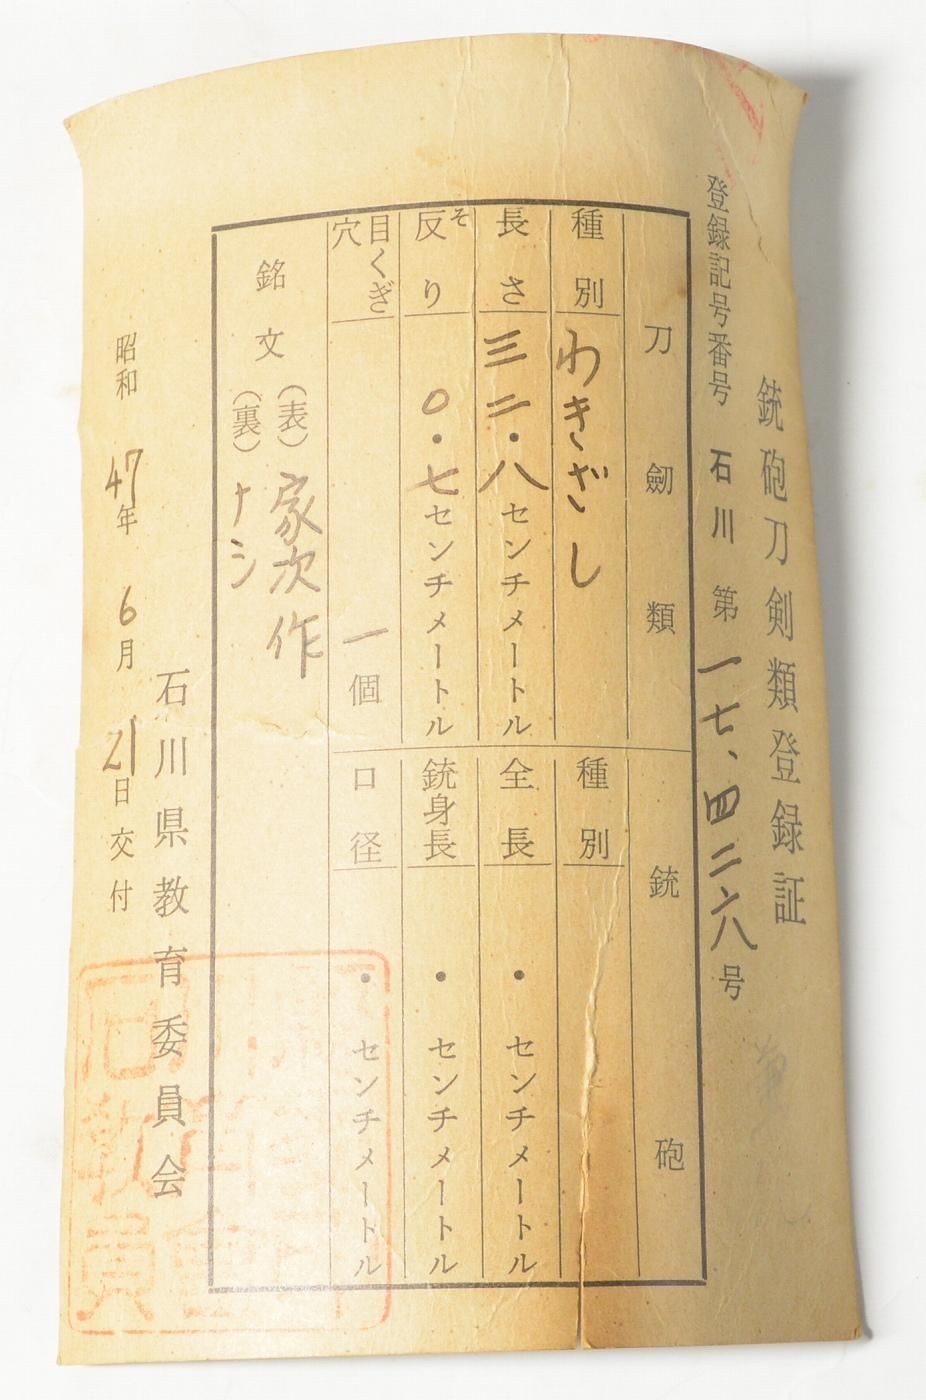 銃砲刀剣類登録証
登録記号番号 石川 第一七、四二六八号
刀劒類
種別 わきざし
長さ 三二・八センチメートル
反り そ 〇・七センチメートル
目くぎ穴 一個
銃砲
種別
全長 ・ センチメートル
銃身長 ・ センチメートル
口径 ・ センチメートル
銘文 (表) 家次作
(裏) ナシ
石川県教育委員会
昭和47年6月21日交付